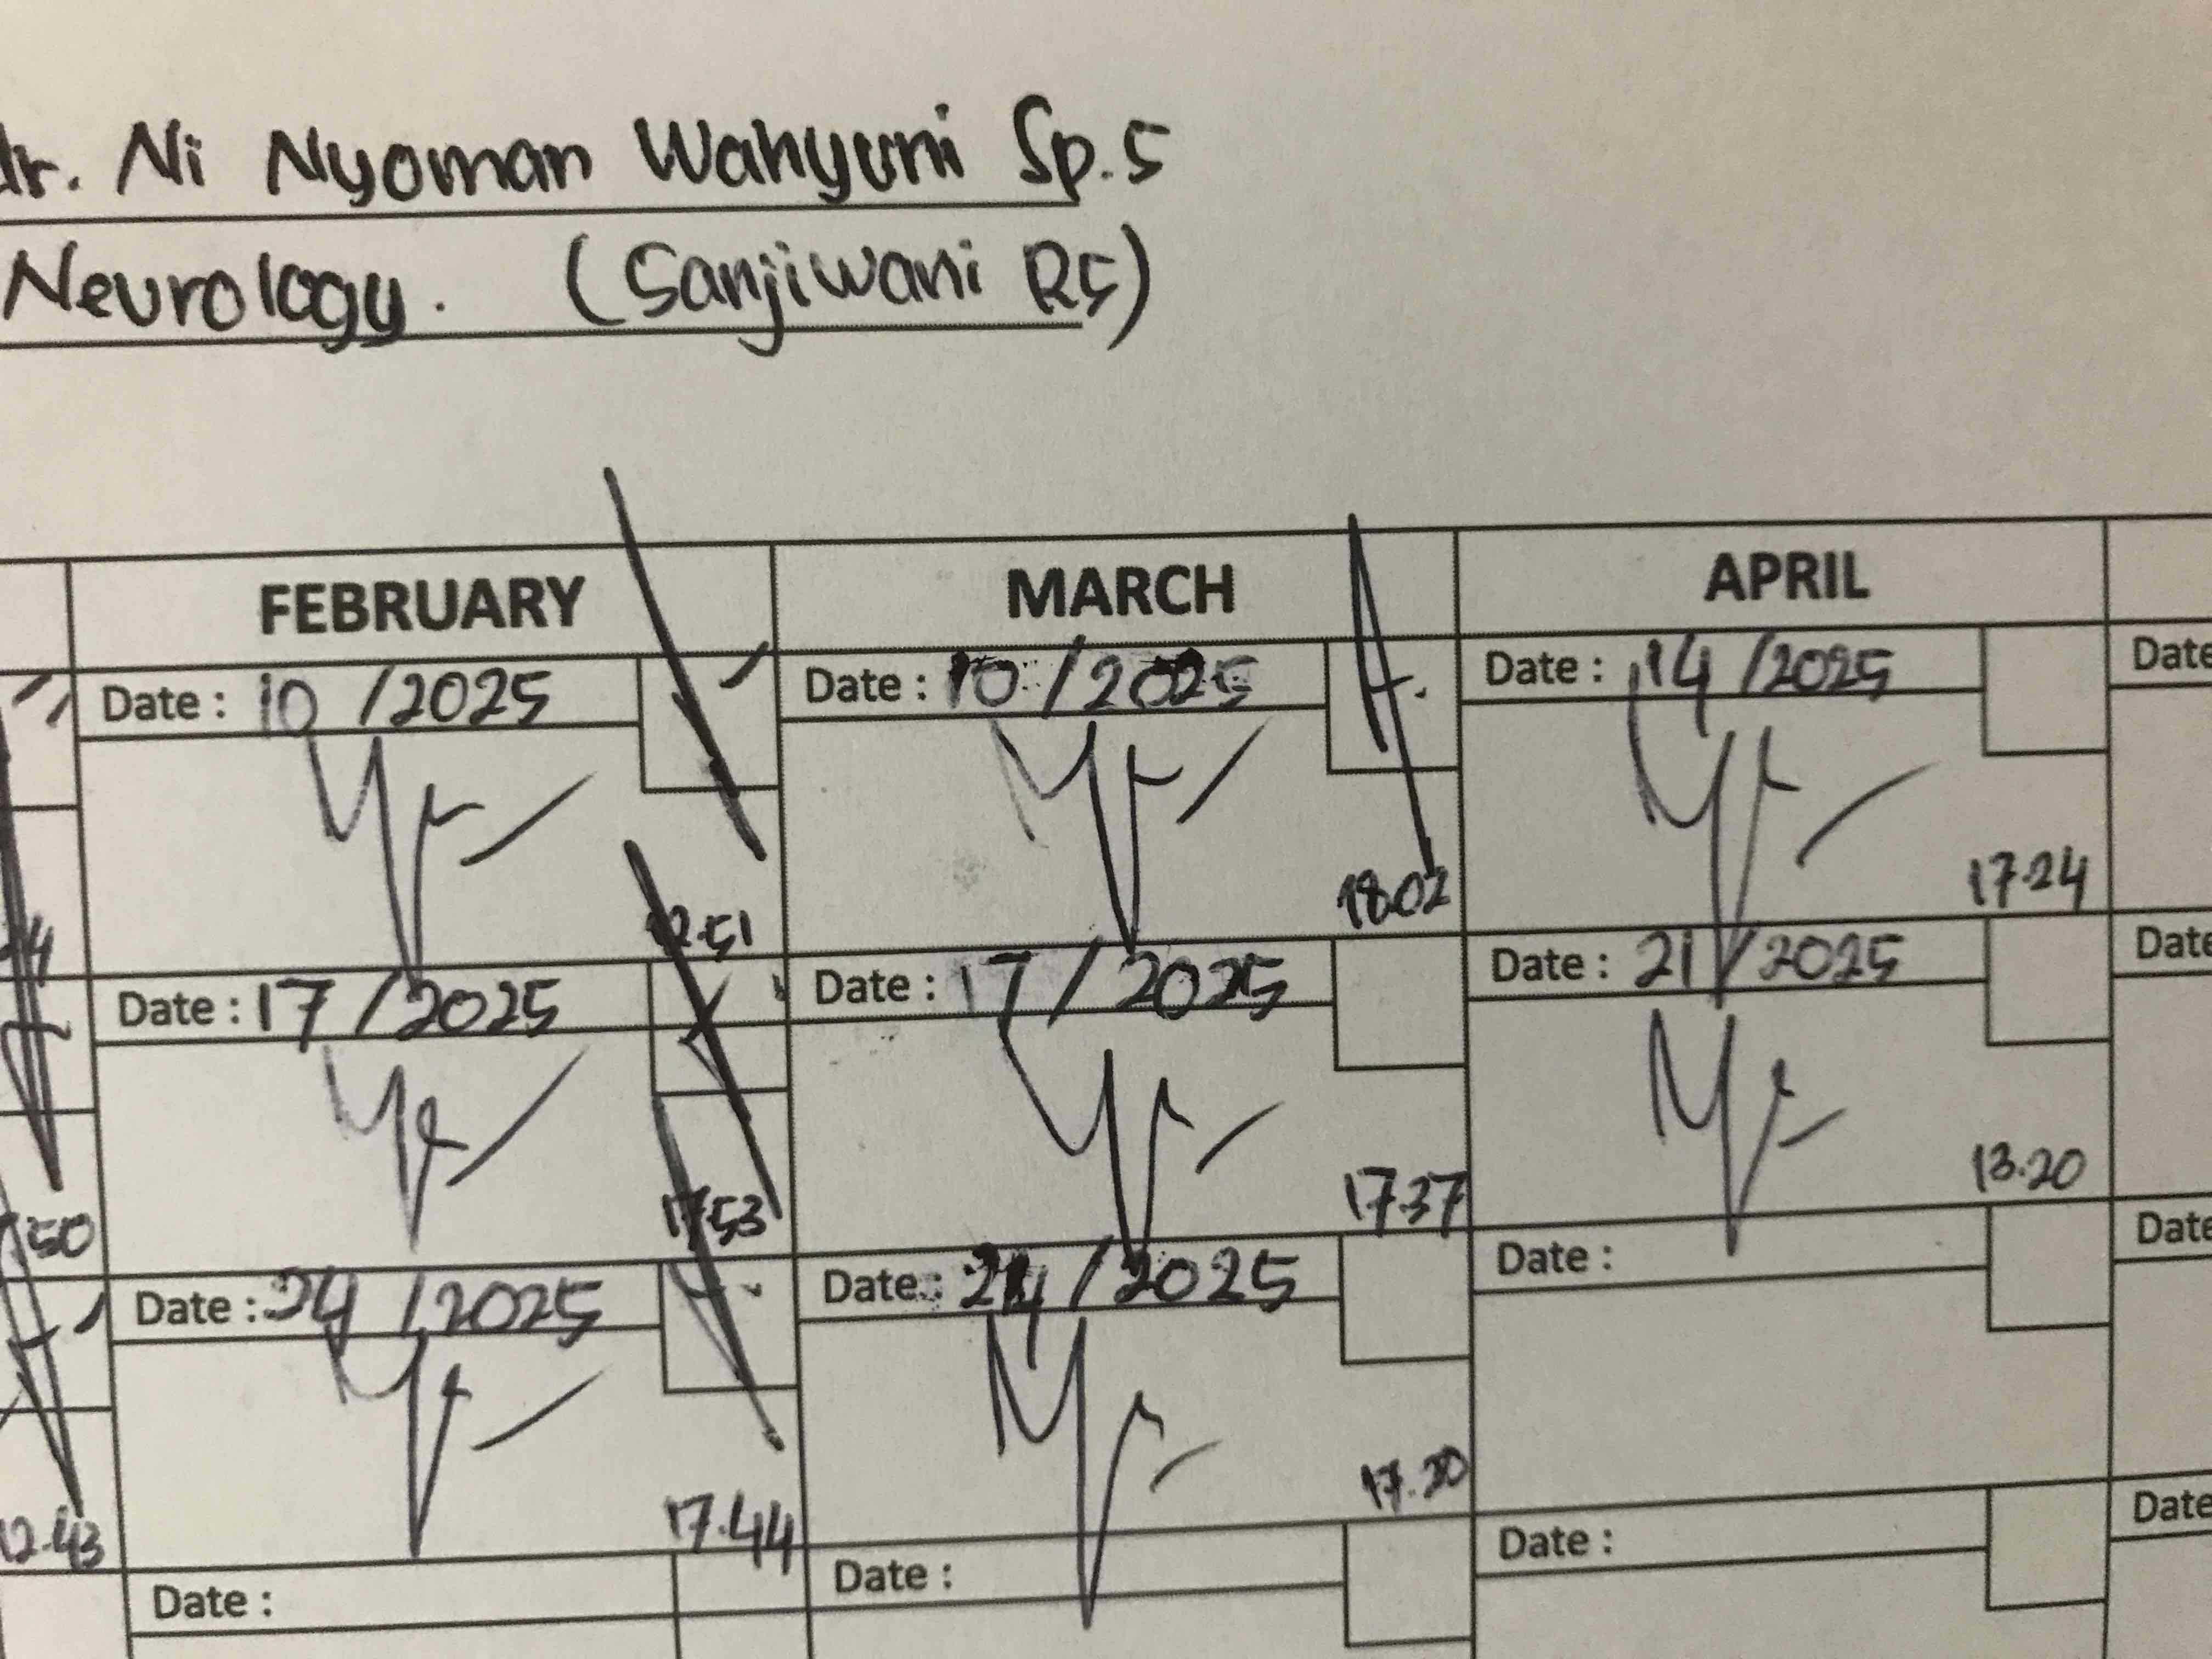 dr. Ni Nyoman Wahyuni Sp.S
Neurology. (Sanjiwani RS)
FEBRUARY MARCH APRIL
Date : 10 /2025 Date : 10 /2025 Date : 14 /2025 Date
12.51 18.02 17.24
Date : 17 /2025 Date : 17 /2025 Date : 21 /2025 Date
50 17.53 17.37 13.20
Date : 24 /2025 Date : 24 /2025 Date : Date
12.43 17.44
Date : Date : Date : Date